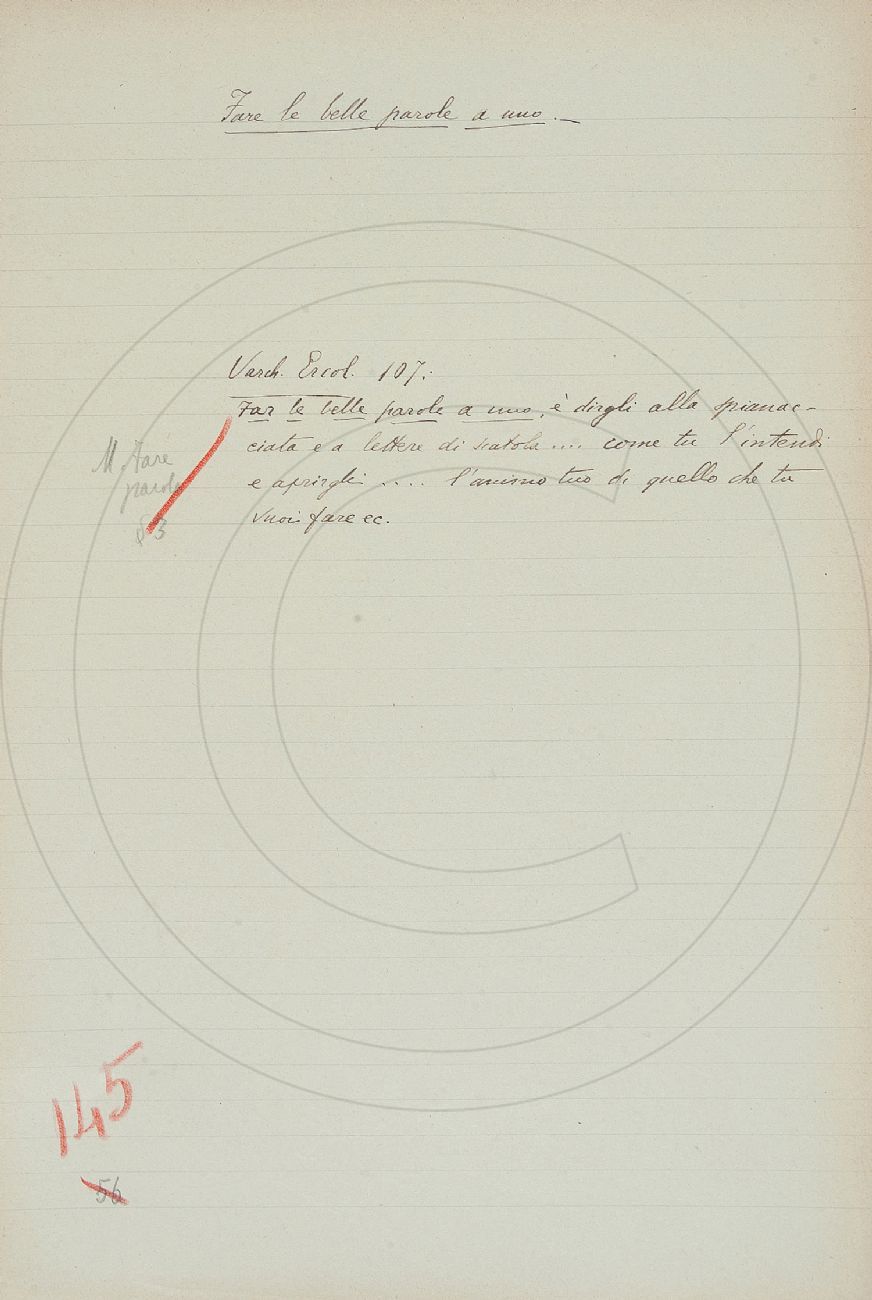 Fare le belle parole a uno. —
Varch. Ercol. 107:
Far le belle parole a uno, è dirgli alla spianac-
ciata e a lettere di scatola .... come tu l'intendi
e aprirgli .... l'animo tuo di quello che tu
vuoi fare ec.
M Fare
parola
§ 3
145
56